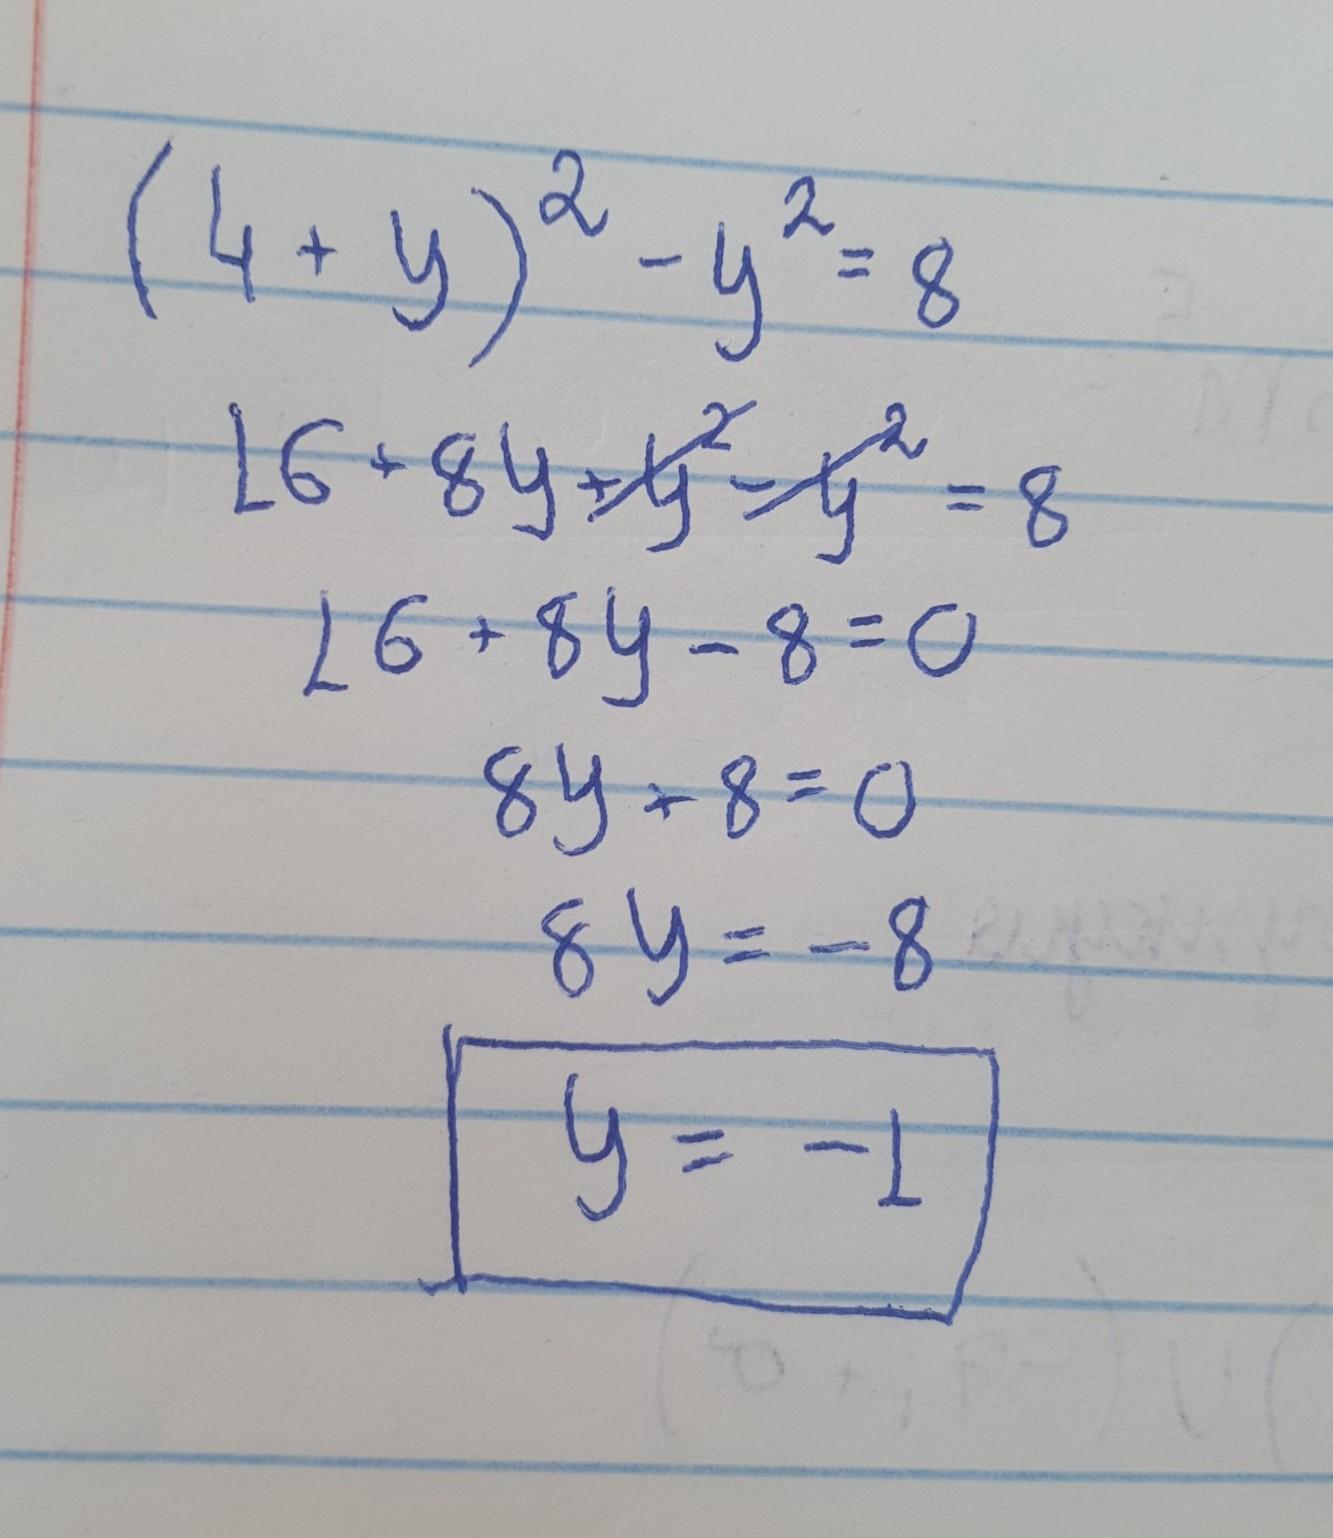 (4 + y)² - y² = 8
16 + 8y + y² - y² = 8
16 + 8y - 8 = 0
8y + 8 = 0
8y = -8
y = -1